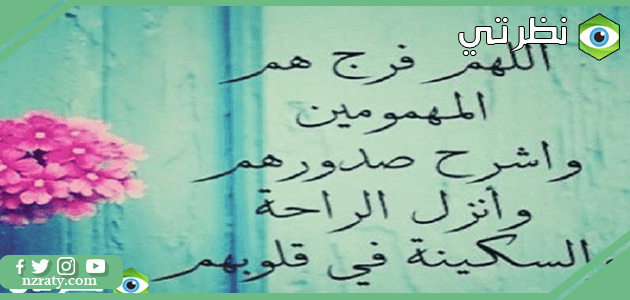 نظرتي
اللهم فرج هم
المهمومين
واشرح صدورهم
وأنزل الراحة
والسكينة في قلوبهم
nzraty.com